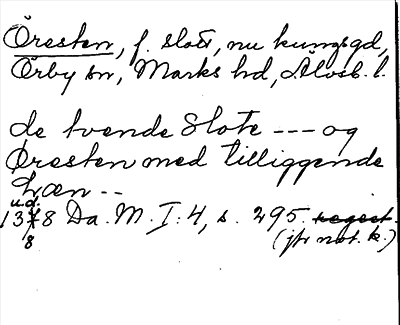 Öresten, f. slott, nu kungsgd,
Örby sn, Marks hd, Älvsb. l.
de tvende Slote --- og
Øresten med tilliggende
Læn --
u.d.
1378 Da. M. I: 4, s. 295. regest.
8 (jfr not. k.)